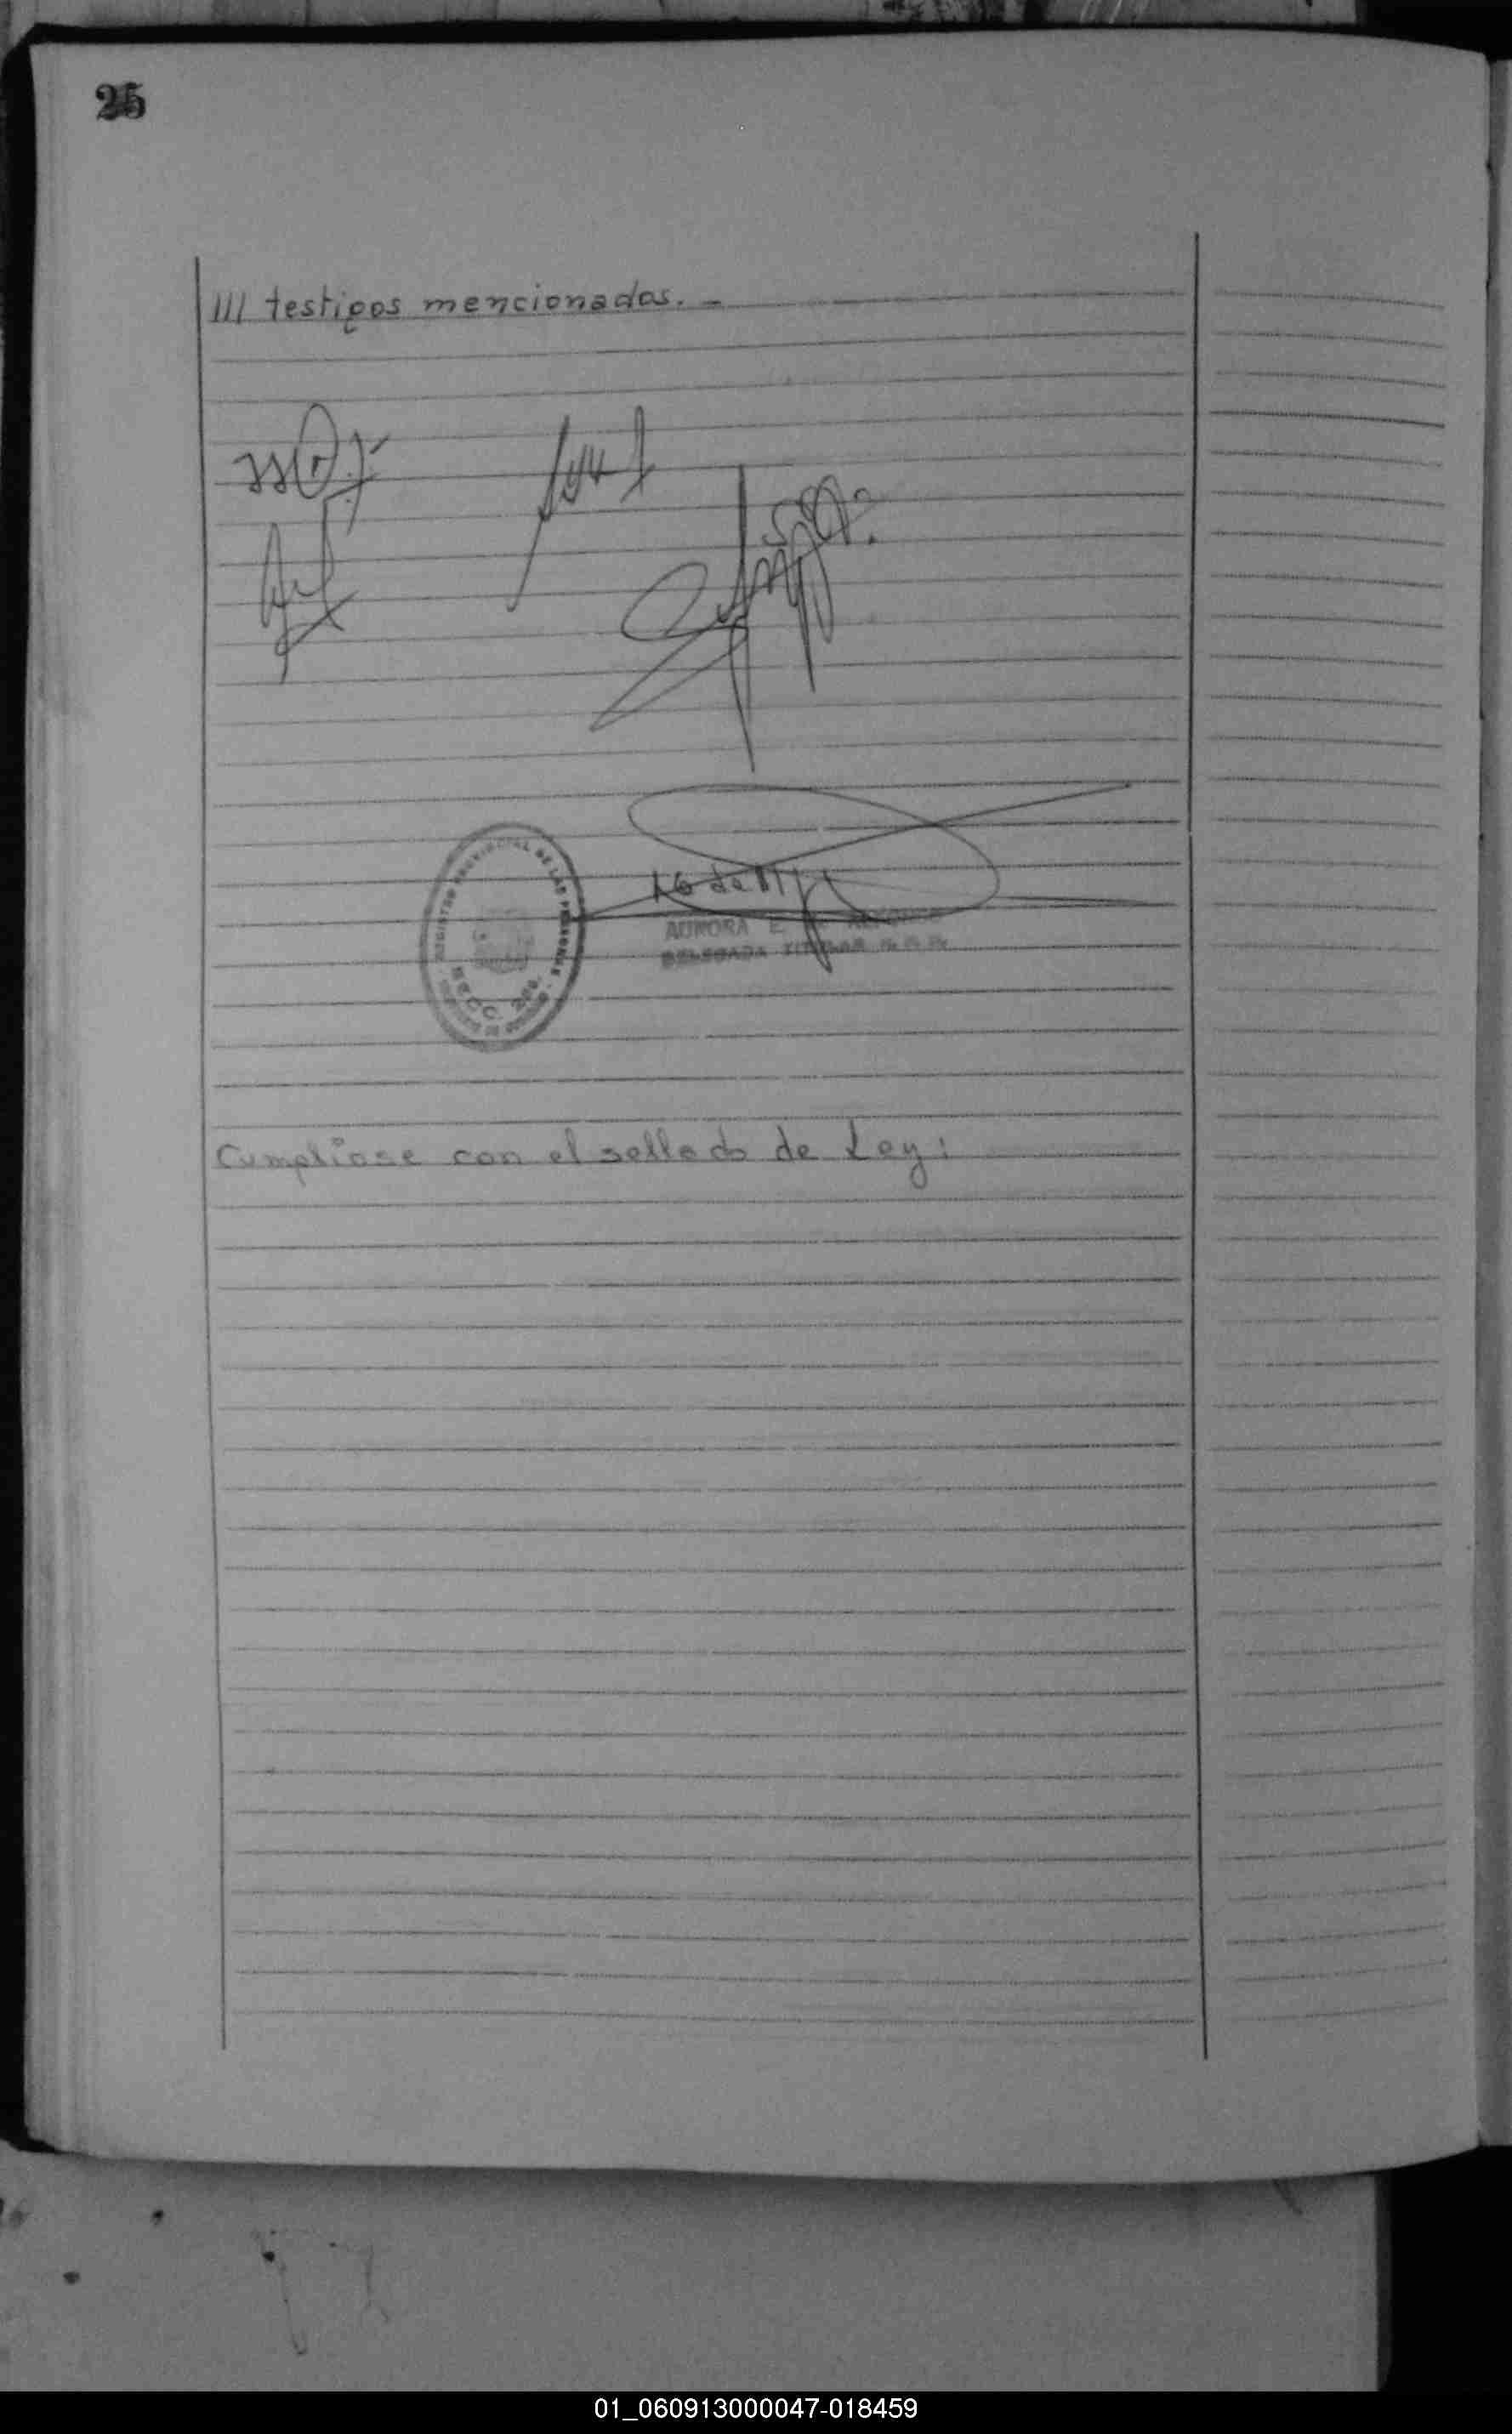 25
/// testigos mencionados. -
REGISTRO PROVINCIAL DE LAS PERSONAS
SECC.
AURORA E.
DELEGADA TITULAR
Cumpliose con el sellado de Ley:
01_060913000047-018459